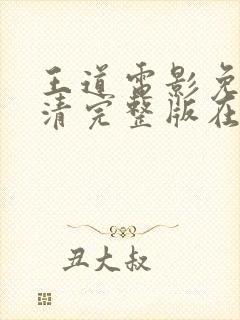 王道电影免
清完整版在
丑大叔